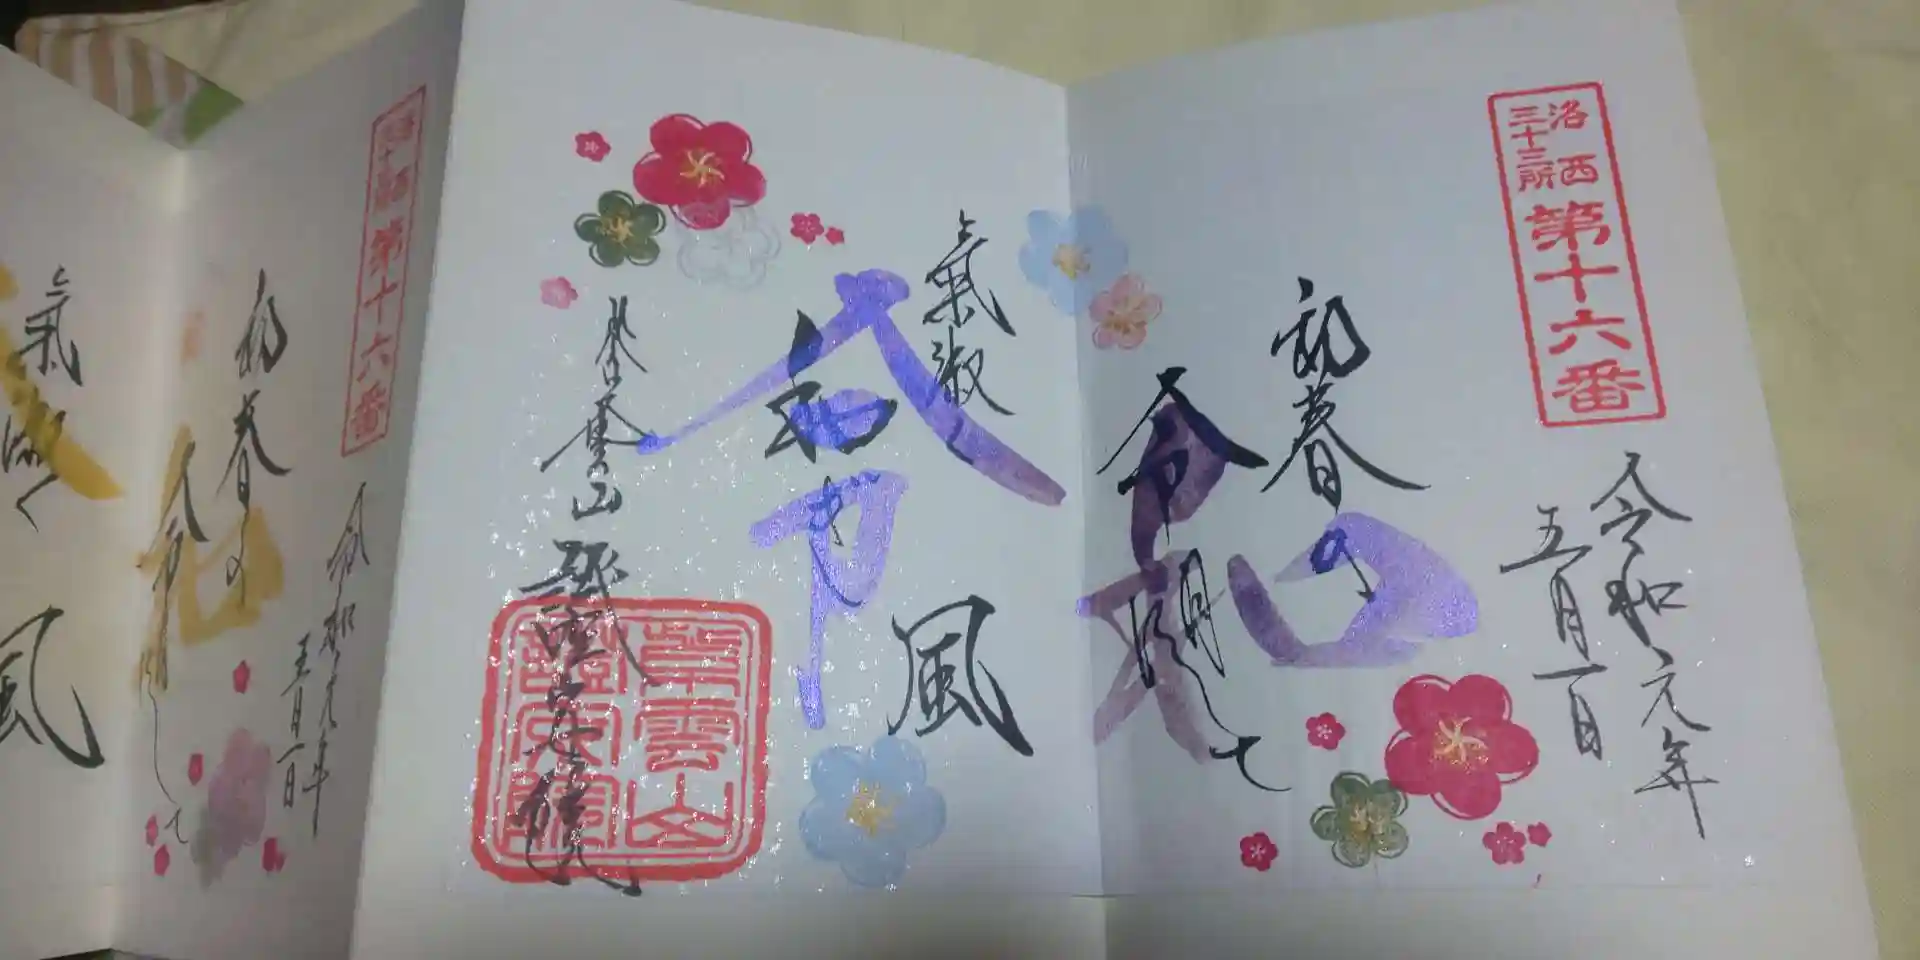 洛西
三十三所
第十六番
令和元年
五月一日
初春の
令月にして
令和
氣淑
風
和ぎ
紫雲山
證安院
紫雲山
證安院
第十六番
令和元年
五月一日
初春の
令月にして
氣淑く
風